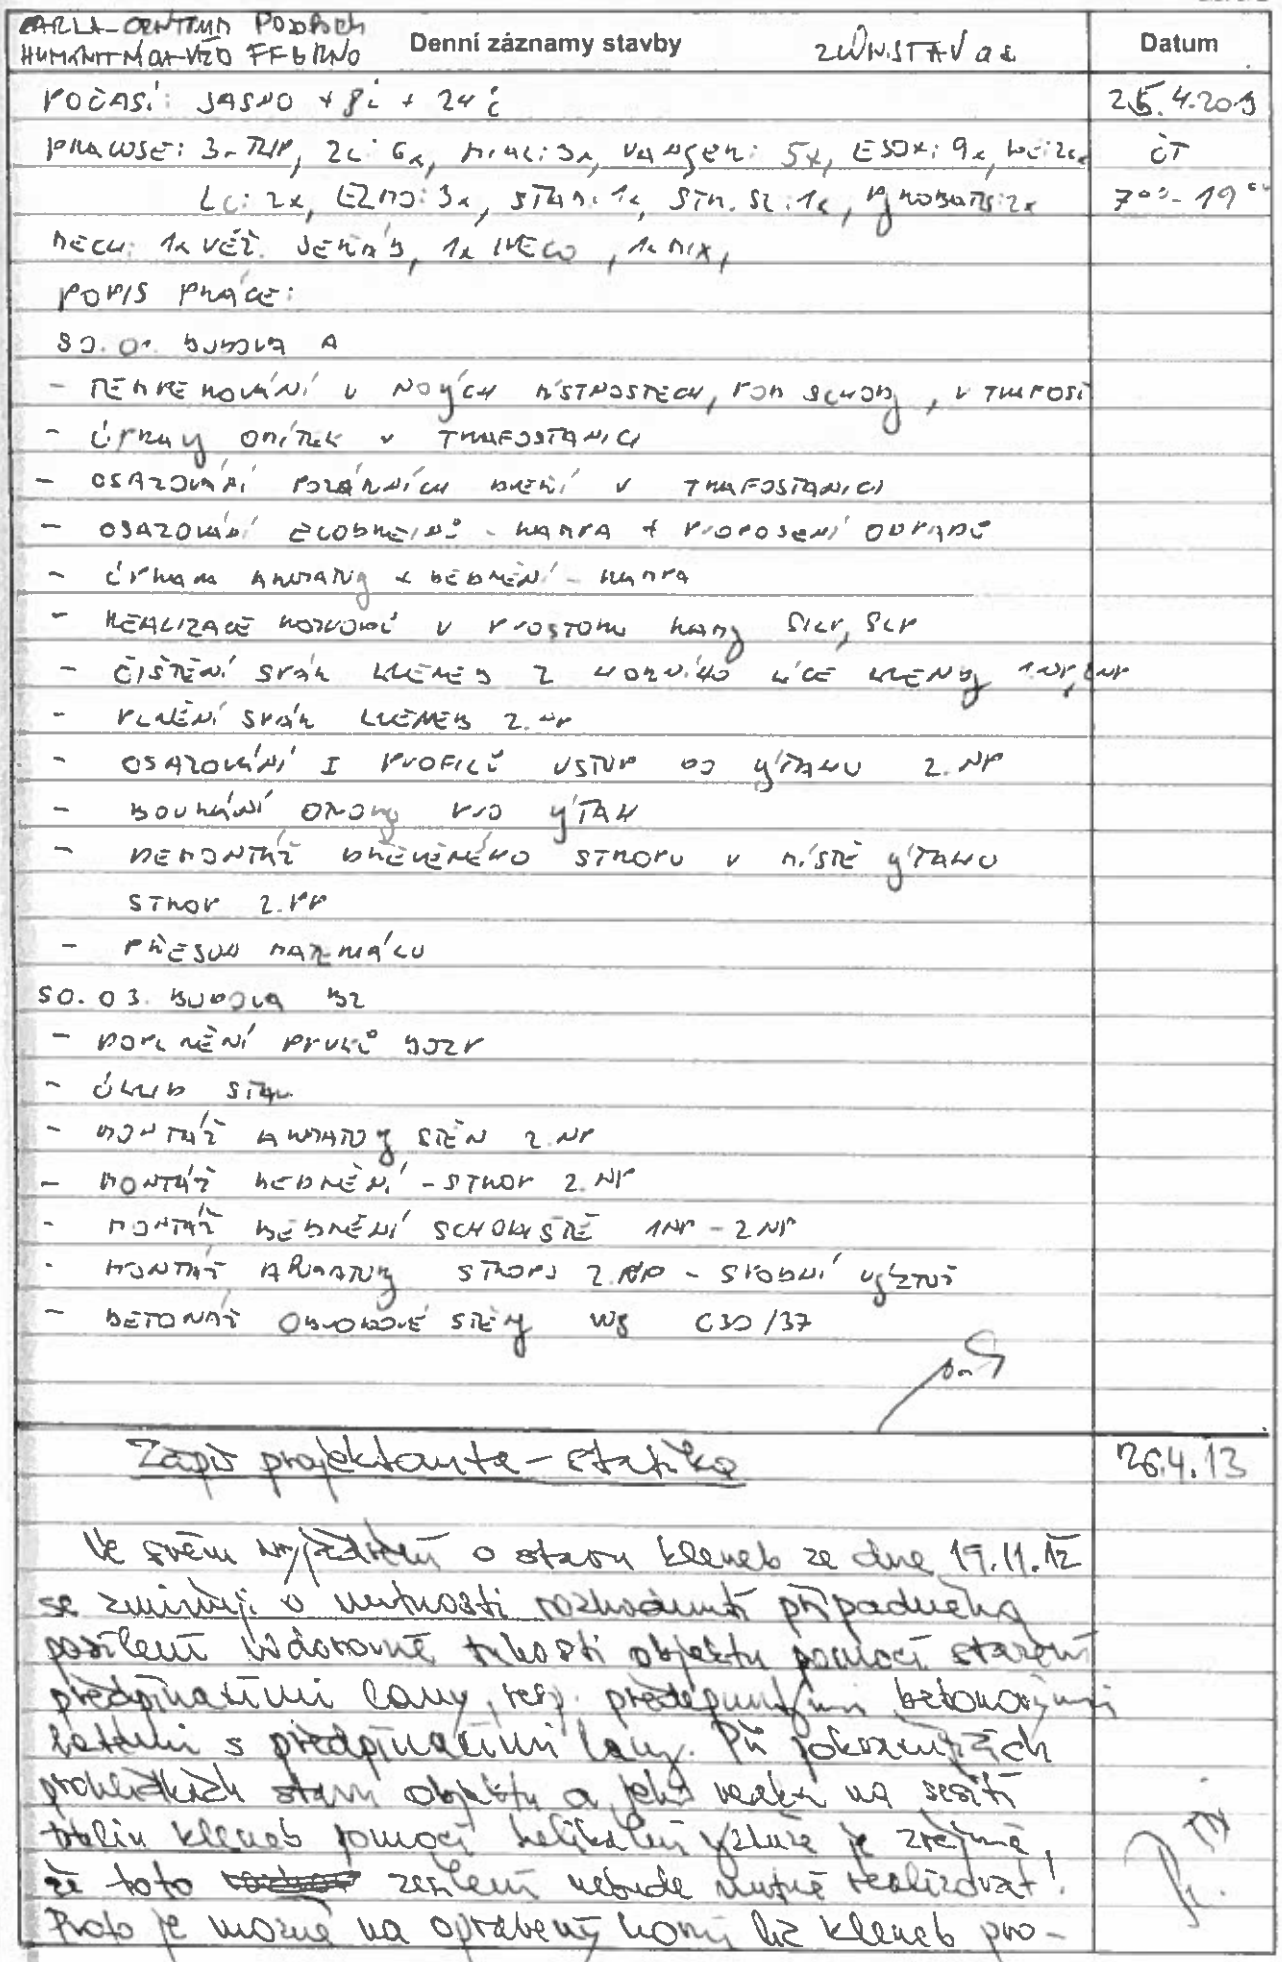 CARLA-CENTRUM PODPORY
HUMANITNÍCH VĚD FF BRNO Denní záznamy stavby Datum
POČASÍ: JASNO + 8°C + 24°C 25.4.2013
PRACUJE: 3-TRP, 2c: 6x, 3x, 5x, ESOX: 9x, ČT
LC: 2x, EZMO: 3x, 1x, 1x, 2x 7°° - 19°°
MECH: 1x VĚŽ. JEŘÁB, 1x IVECO, 1x MIX,
POPIS PRÁCE:
SO.01. BUDOVA A
- V NOVÝCH MÍSTNOSTECH, POD SCHODY, V TRAFOST
- ÚPRAVY OMÍTEK V TRAFOSTANICI
- OSAZOVÁNÍ POŽÁRNÍCH DVEŘÍ V TRAFOSTANICI
- OSAZOVÁNÍ - RAMPA + PROPOJENÍ ODPADŮ
- ÚPRAVA ARMATURY + BEDNĚNÍ - RAMPA
- REALIZACE ROZVODŮ V PROSTORU RAMPY SILP, SLP
- ČIŠTĚNÍ SPÁR KLENEB Z HORNÍHO LÍCE KLENBY 1NP, 2NP
- PLNĚNÍ SPÁR KLENEB 2.NP
- OSAZOVÁNÍ I PROFILŮ VSTUP DO VÝTAHU 2.NP
- BOURÁNÍ OTVORU PRO VÝTAH
- DEMONTÁŽ DŘEVĚNÉHO STROPU V MÍSTĚ VÝTAHU
STROP 2.PP
- PŘESUN MATERIÁLU
SO.03. BUDOVA B2
- DOPLNĚNÍ PRVKŮ BOZP
- ÚKLID STAV.
- MONTÁŽ ARMATURY STĚN 2.NP
- MONTÁŽ BEDNĚNÍ - STROP 2.NP
- MONTÁŽ BEDNĚNÍ SCHODIŠTĚ 1NP - 2NP
- MONTÁŽ ARMATURY STROPU 2.NP - SPODNÍ VÝZTUŽ
- BETONÁŽ OBVODOVÉ STĚNY W8 C30/37
Zápis projektanta - statika 26.4.13
Ve svém vyjádření o stavu kleneb ze dne 19.11.12
se zmiňuji o nutnosti rozhodnutí případného
posílení vodorovné tuhosti objektu pomocí stažení
předpínacími lany, resp. předepnutými betonovými
s předpínacími lany. Při pokračujících
prohlídkách stavu objektu a jeho reakci na sešití
trhlin kleneb pomocí helikální výztuže je zřejmé,
že toto zesílení nebude nutné realizovat!
Proto je možné na opravený horní líc kleneb pro-